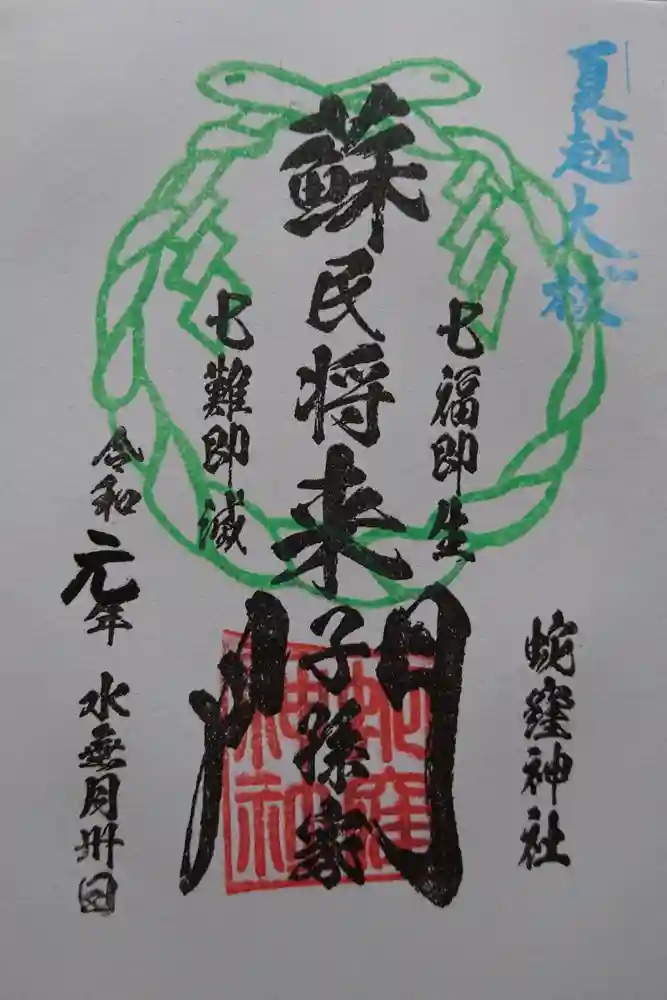 夏越大祓
七福即生
蘇民将来子孫家門
七難即滅
蛇窪神社
令和元年 水無月卅日
蛇窪
神社